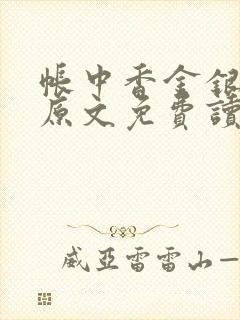 帳中香金銀
原文免費讀
威亞雷雷山—